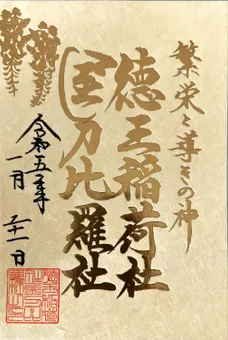 繁栄と導きの神
徳王稲荷社
金刀比羅社
令和五年
一月 二十一日